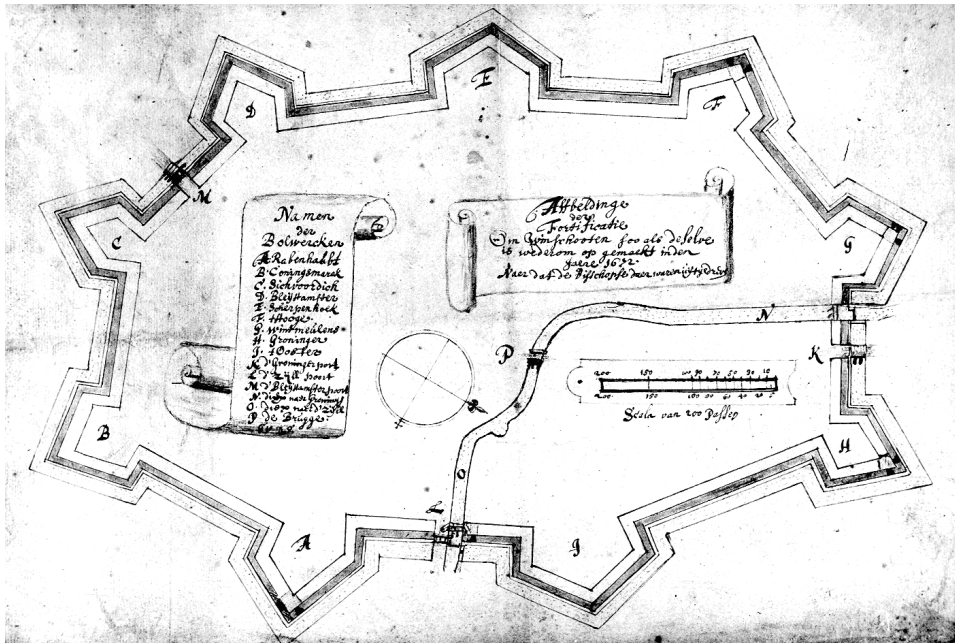 E
D
F
M
C
G
Namen
der
Bolwercken
A. Rabenhabbt
B. Coningsmarck
C. Dichvoordich
D. Bleijstamster
E. Scherpenhoek
F. t Hooge.
G. Winkmeulens
H. Groninger
J. t Ooster
K. d'Groninger port
L. d'Zijll poort
M. d'Bleijstamster poort
N. diep na de Groninge
O. diep naer d'Zijle
P. de Brugge.
Affbeldinge
der
Fortificatie
in Winschooten soo als deselve
is wederom op gemackt inden
Jaere 1672.
Naer dat de Bisschopse daer waren
N
P
K
200 150 100 90 80 70 60 50 40 30 20 10
200 150 100 80 60 40 20
Scala van 200 Passen
B
H
O
L
A
J